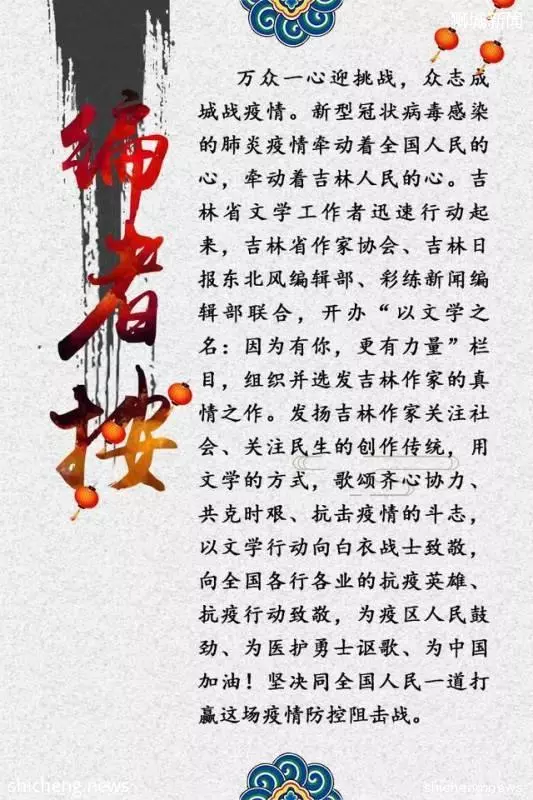 狮城新闻
编者按
万众一心迎挑战，众志成
城战疫情。新型冠状病毒感染
的肺炎疫情牵动着全国人民的
心，牵动着吉林人民的心。吉
林省文学工作者迅速行动起
来，吉林省作家协会、吉林日
报东北风编辑部、彩练新闻编
辑部联合，开办“以文学之
名：因为有你，更有力量”栏
目，组织并选发吉林作家的真
情之作。发扬吉林作家关注社
会、关注民生的创作传统，用
文学的方式，歌颂齐心协力、
共克时艰、抗击疫情的斗志，
以文学行动向白衣战士致敬，
向全国各行各业的抗疫英雄、
抗疫行动致敬，为疫区人民鼓
劲、为医护勇士讴歌、为中国
加油！坚决同全国人民一道打
赢这场疫情防控阻击战。
shicheng.news
shicheng.news